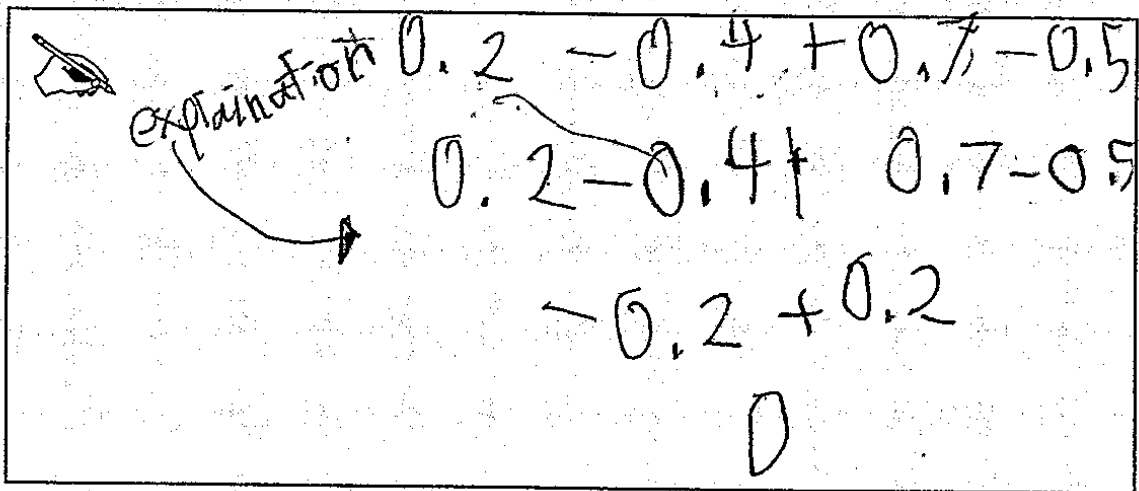 explaination 0.2 - 0.4 + 0.7 - 0.5
0.2 - 0.4 + 0.7 - 0.5
- 0.2 + 0.2
0